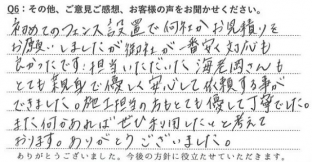 Q6：その他、ご意見ご感想、お客様の声をお聞かせください。
初めてのフェンス設置で何社かお見積りを
お願いしましたが御社が一番安く対応も
良かったです。担当いただいた海老岡さんも
とても親身で優しく安心して依頼する事が
できました。施工担当の方もとても優しくて丁寧でした。
また何かあればぜひ利用したいと考えて
おります。ありがとうございました。
ありがとうございました。今後の方針に役立たせていただきます。